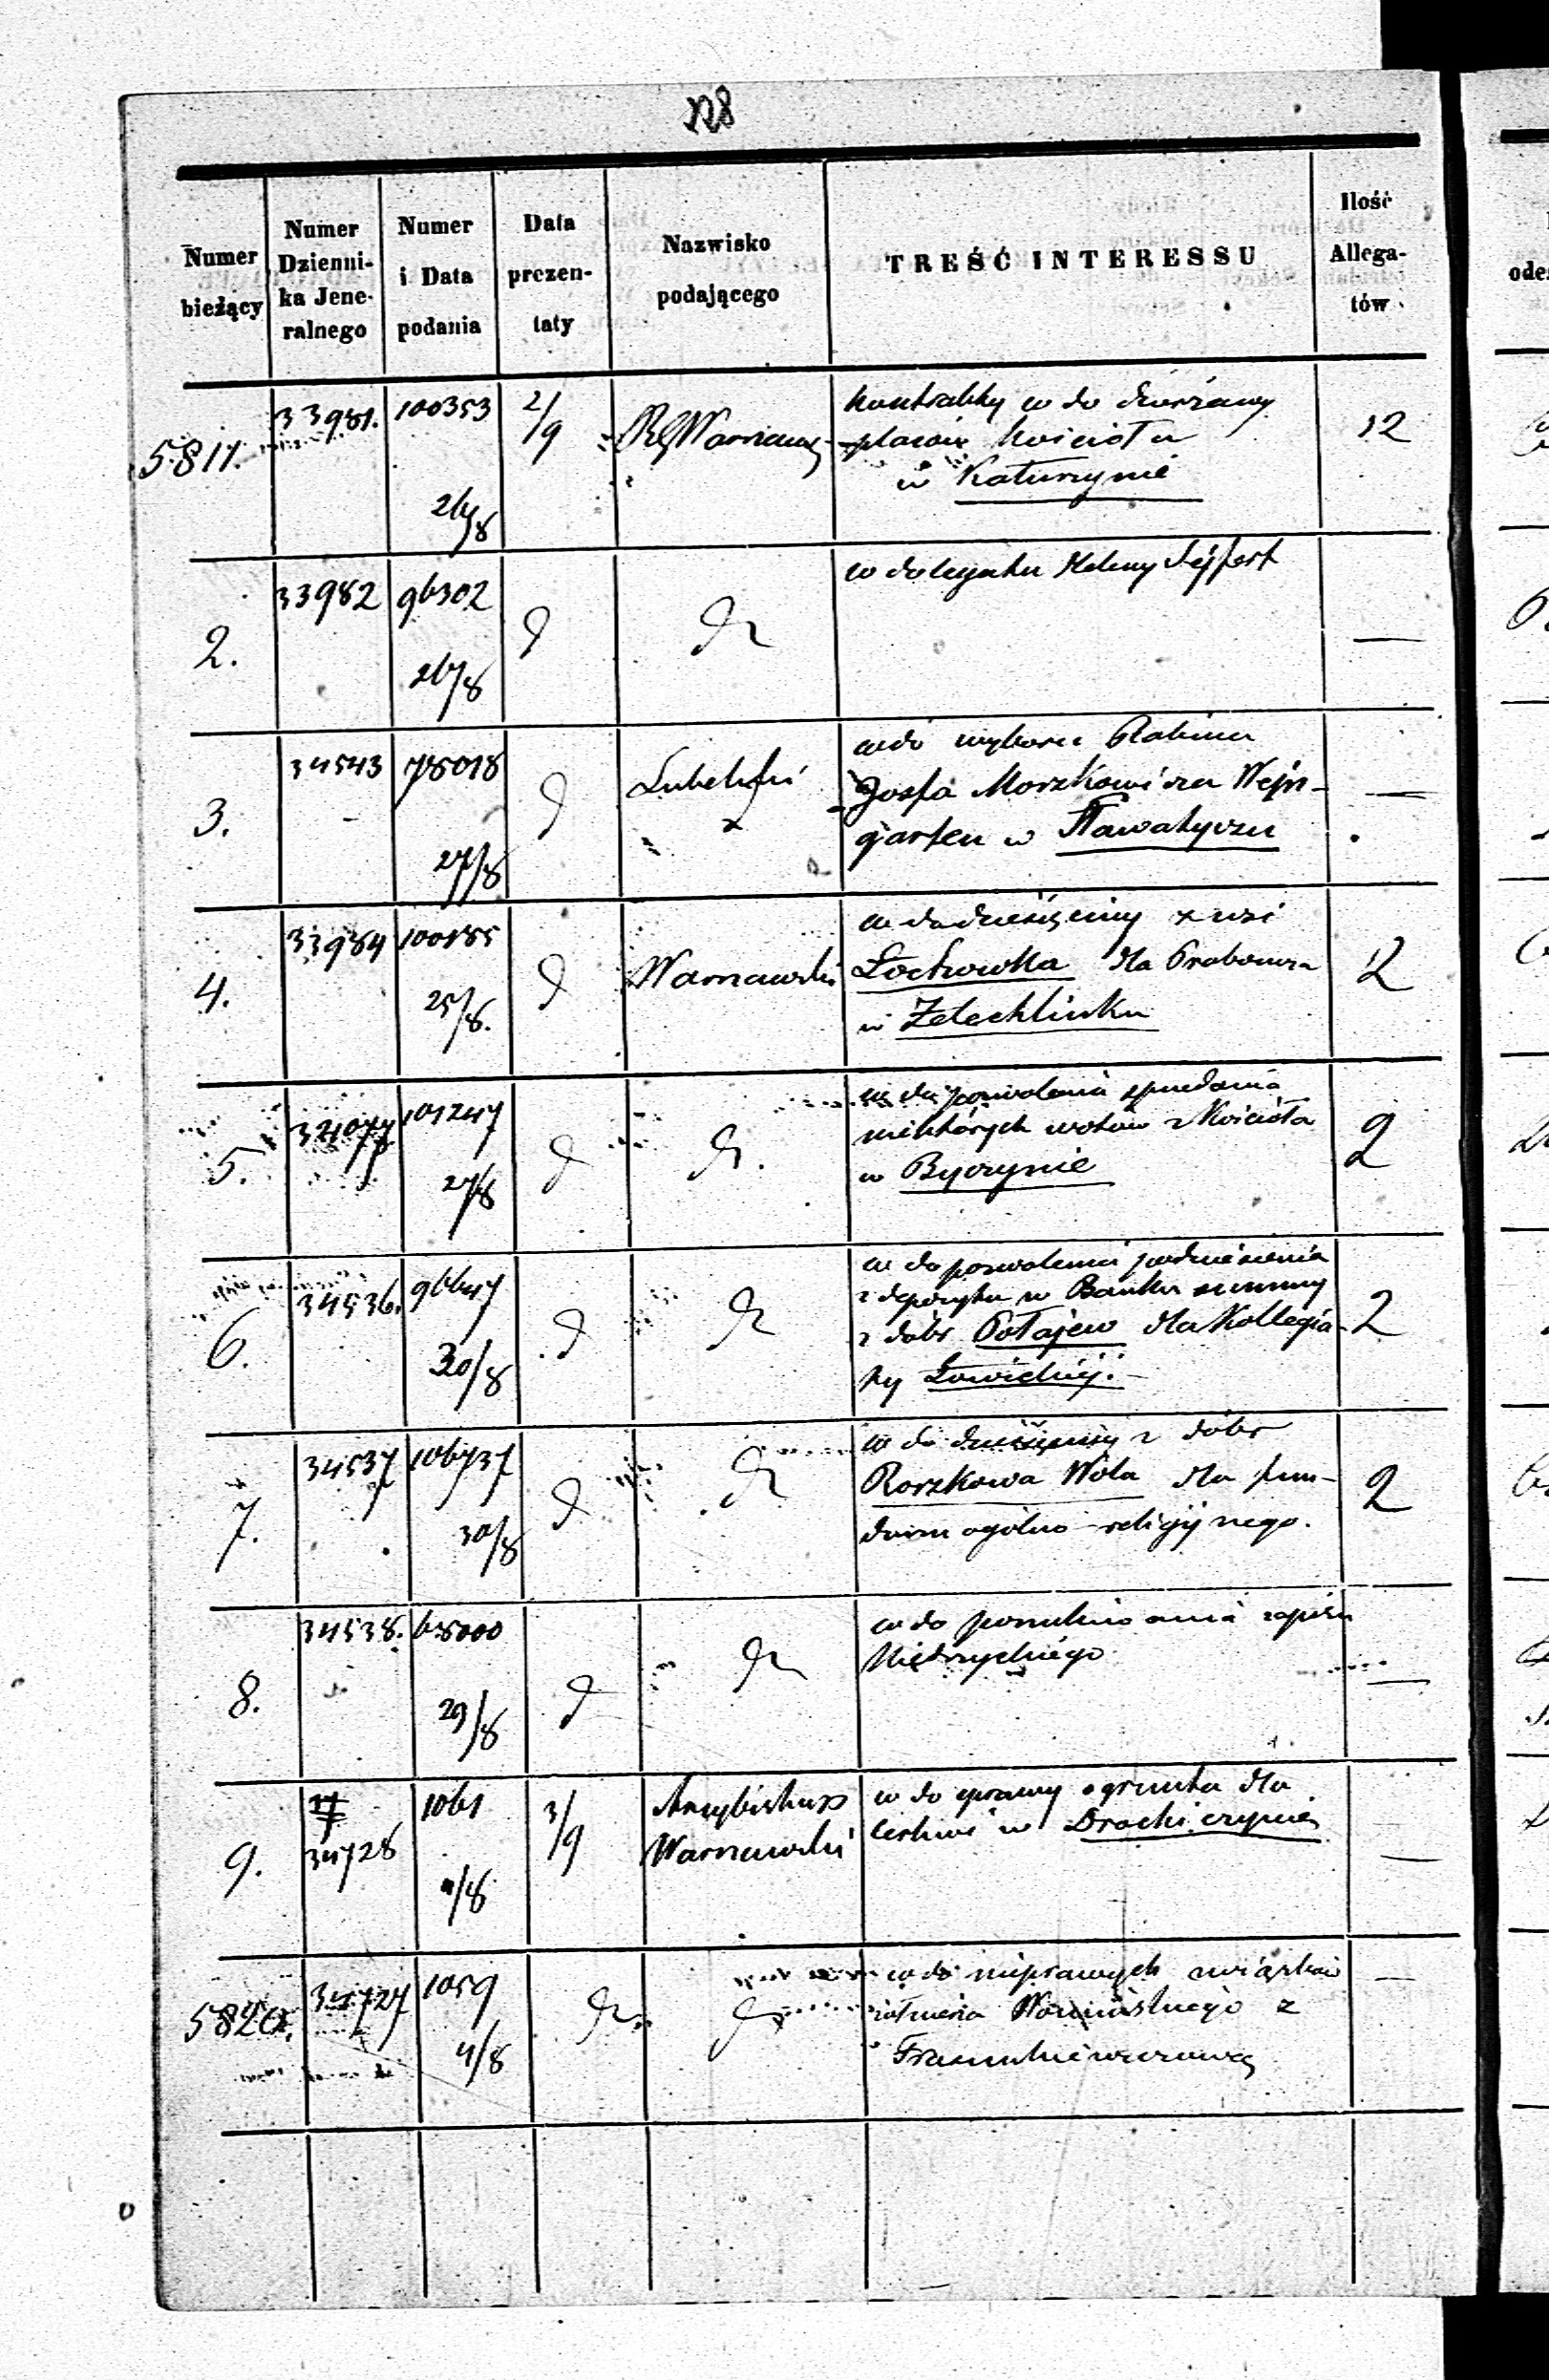 128
Numer bieżący
Numer Dzienni-ka Jene-ralnego
Numer i Data podania
Data prezen-taty
Nazwisko podającego
TREŚĆ INTERESSU
Ilość Allega-tów
5811. 33981. 100353 26/8 2/9 RG Warszaws
kontrakty w do dzierżawy
placów kościoła
w Kałuszynie
12
2. 33982 96302 26/8 d dr
w do legatu Heleny Sejfert
—
3. 34543 78018 27/8 d Lubelski
w do wyboru Rabina
Josfa Moszkowicza Wejn-
garten w Sławatyczu
—
4. 33984 100185 25/8. d Warszawski
w do dziesięciny z wsi
Łochowka dla Proboszcza
w Żelechlinku
12
5. 34077 101247 27/8 d dr.
w do pozwolenia sprzedania
niektórych wotów z Kościoła
w Byczynie
2
6. 34536. 96647 30/8 d dr
w do pozwolenia podniesienia
z depozytu w Banku summy
z dóbr Połajew dla Kollegia-
ty Łowickiej.
2
7. 34537 106737 30/8 d dr
w do dziesięciny z dóbr
Roszkowa Wola dla fun-
duszu ogólno-religijnego.
2
8. 34538. 68000 29/8 d dr
w do zapisu
—
9. 34728 1061 4/8 3/9 Arcybiskup
Warszawski
w do sprawy o grunta dla
cerkwi w Drochiczynie
—
5820. 34727 1059 4/8 dr. dr
w do nieprawych związków
żołnierza z
—